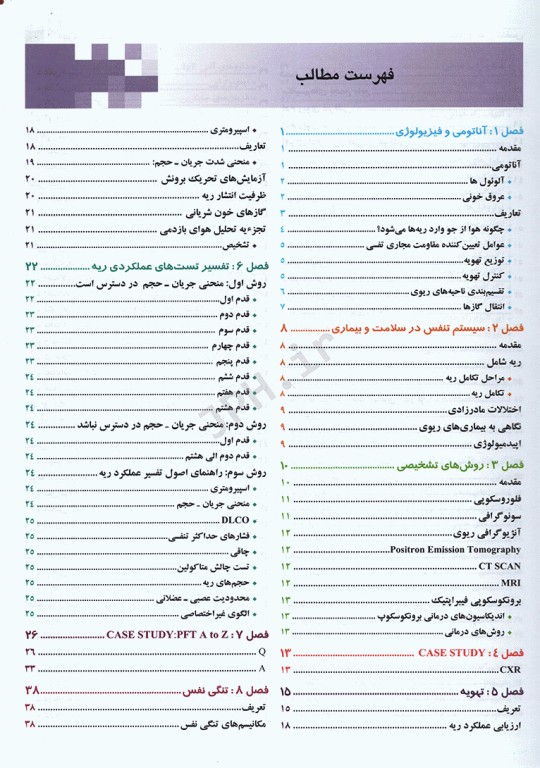 فهرست مطالب
فصل ۱: آناتومی و فیزیولوژی ۱
مقدمه ۱
آناتومی ۱
• آلوئول ها ۲
• عروق خونی ۲
تعاریف ۳
• چگونه هوا از جو وارد ریه‌ها می‌شود؟ ۴
• عوامل تعیین‌کننده مقاومت مجاری تفسی ۵
• توزیع تهویه ۵
• کنترل تهویه ۵
• تقسیم‌بندی ناحیه‌های ریوی ۶
• انتقال گازها ۷
فصل ۲: سیستم تنفس در سلامت و بیماری ۸
مقدمه ۸
ریه شامل ۸
• مراحل تکامل ریه ۸
• تکامل ریه ۸
اختلالات مادرزادی ۹
نگاهی به بیماری‌های ریوی ۹
اپیدمیولوژی ۹
فصل ۳: روش‌های تشخیصی ۱۰
مقدمه ۱۰
فلوروسکوپی ۱۱
سونوگرافی ۱۱
آنژیوگرافی ریوی ۱۲
Positron Emission Tomography ۱۲
CT SCAN ۱۲
MRI ۱۲
برونکوسکوپی فیبراپتیک ۱۳
• اندیکاسیون‌های درمانی برونکوسکوپ ۱۳
• روش‌های درمانی ۱۳
فصل ۴: CASE STUDY ۱۳
CXR ۱۳
فصل ۵: تهویه ۱۵
تعریف ۱۵
ارزیابی عملکرد ریه ۱۸
• اسپیرومتری ۱۸
تعاریف ۱۸
• منحنی شدت جریان ـ حجم: ۱۹
آزمایش‌های تحریک برونش ۲۰
ظرفیت انتشار ریه ۲۰
گازهای خون شریانی ۲۱
تجزءیه تحلیل هوای بازدمی ۲۱
• تشخیص ۲۱
فصل ۶: تفسیر تست‌های عملکردی ریه ۲۲
روش اول: منحنی جریان ـ حجم در دسترس است ۲۲
• قدم اول ۲۲
• قدم دوم ۲۳
• قدم سوم ۲۳
• قدم چهارم ۲۳
• قدم پنجم ۲۳
• قدم ششم ۲۴
• قدم هفتم ۲۴
• قدم هشتم ۲۴
روش دوم: منحنی جریان ـ حجم در دسترس نباشد ۲۴
• قدم اول ۲۴
• قدم دوم الی هشتم ۲۴
روش سوم: راهنمای اصول تفسیر عملکرد ریه ۲۴
• اسپیرومتری ۲۴
• منحنی جریان ـ حجم ۲۴
• DLCO ۲۵
• فشارهای حداکثر تنفسی ۲۵
• چاقی ۲۵
• تست چالش متاکولین ۲۵
• حجم‌های ریه ۲۵
• محدودیت عصبی ـ عضلانی ۲۵
• الگوی غیراختصاصی ۲۵
فصل ۷: CASE STUDY:PFT A to Z ۲۶
Q ۲۶
A ۳۳
فصل ۸: تنگی نفس ۳۸
تعریف ۳۸
مکانیسم‌های تنگی نفس ۳۸